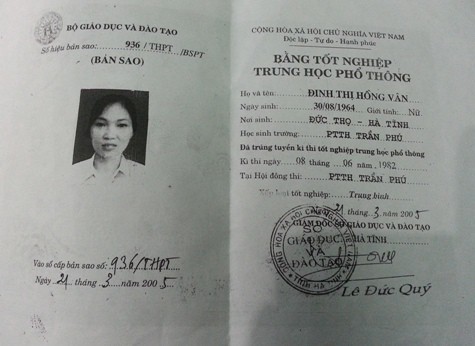 BỘ GIÁO DỤC VÀ ĐÀO TẠO
Số hiệu bản sao: 936 /THPT /BSPT
(BẢN SAO)
Vào sổ cấp bản sao số: 936/THPT
Ngày 21 tháng 3 năm 2005
CỘNG HÒA XÃ HỘI CHỦ NGHĨA VIỆT NAM
Độc lập - Tự do - Hạnh phúc
BẰNG TỐT NGHIỆP
TRUNG HỌC PHỔ THÔNG
Họ và tên: ĐINH THỊ HỒNG VÂN
Ngày sinh: 30/08/1964 Giới tính: Nữ
Nơi sinh: ĐỨC THỌ - HÀ TĨNH
Học sinh trường: PTTH TRẦN PHÚ
Đã trúng tuyển kì thi tốt nghiệp trung học phổ thông
Kì thi ngày 08 tháng 06 năm 1982
Tại Hội đồng thi: PTTH TRẦN PHÚ
Xếp loại tốt nghiệp: Trung bình
21 tháng 3 năm 2005
GIÁM ĐỐC SỞ GIÁO DỤC VÀ ĐÀO TẠO
HÀ TĨNH
SỞ
GIÁO DỤC
VÀ
ĐÀO TẠO
TỈNH HÀ TĨNH
Lê Đức Quý